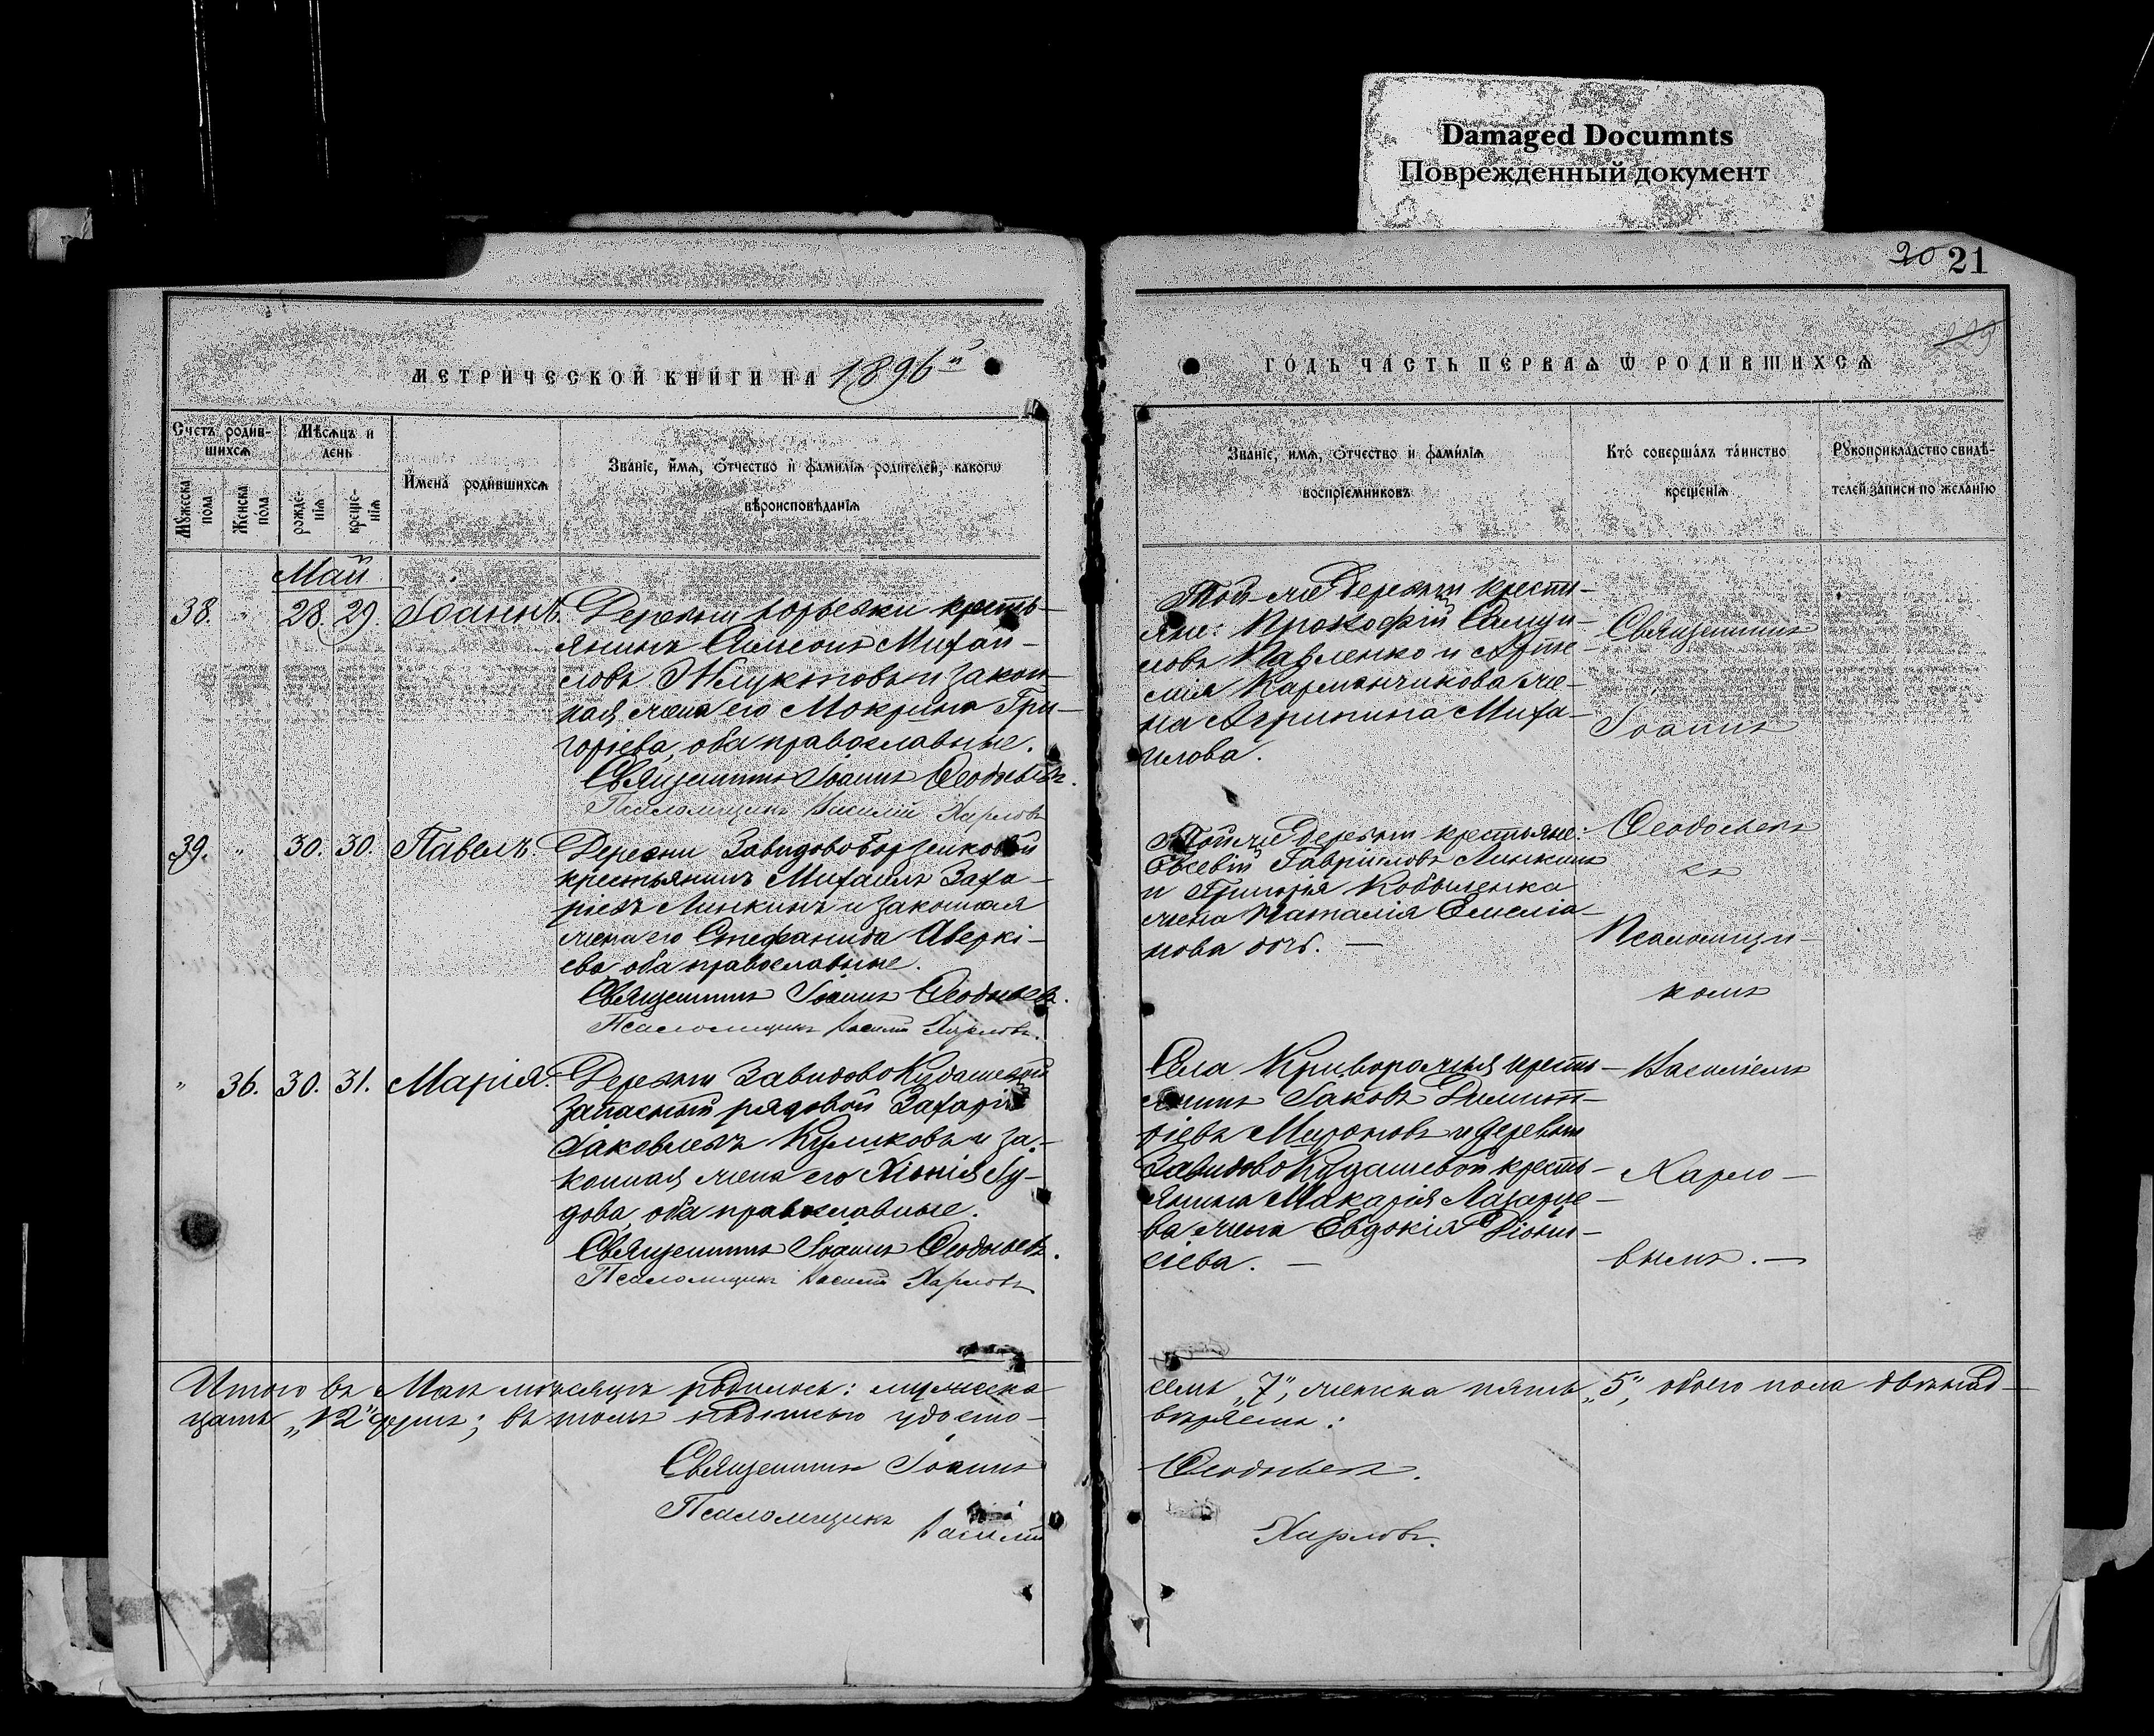 Damaged Documnts
Поврежденный документ
20 21
МЕТРИЧЕСКОЙ КНИГИ НА 1896й
ГОДЪ ЧАСТЬ ПЕРВАЯ Ѿ РОДИВШИХСЯ
Счетъ родив-
шихся
Мѣсяцъ и
день
Мужеска
пола
Женска
пола
рожде-
нія
креще-
нія
Имена родившихся
Званіе, имя, отчество и фамилія родителей, какогѡ
вѣроисповѣданія
Званіе, имя, отчество и фамилія
воспріемниковъ
Кто совершалъ таинство
крещенія
Рукоприкладство свидѣ-
телей записи по желанію
Май
38. " 28. 29. Іоаннъ.
Деревни кресть-
янинъ Симеонъ Михаи-
ловъ Жлуктовъ и закон-
ная жена его Мокрина Гри-
горіева, оба православные.
Священникъ Іоаннъ Ѳеодосьевъ.
Псаломщикъ Василій Харловъ
Той-же деревни кресть-
яне: Прокофій Самуи-
ловъ Павленко и Арте-
мія Карманчикова же-
на Агрипина Миха-
илова.
39. " 30. 30. Павелъ.
Деревни Завидово Борзенковой
крестьянинъ Михаилъ Заха-
рьевъ Линкинъ и законная
жена его Стефанида Аверкі-
ева, оба православные.
Священникъ Іоаннъ Ѳеодосьевъ.
Псаломщикъ Василій Харловъ.
Той же деревни крестьяне:
Евсевій Гавріиловъ Линкинъ
и Григорія Кобыленка
жена Наталія Емеліа-
нова
" 36. 30. 31. Марія.
Деревни Завидово Кудашевой
запасный рядовой Захарій
Іаковлевъ Куликовъ и за-
конная жена его Хіонія Іу-
дова, оба православные.
Священникъ Іоаннъ Ѳеодосьевъ.
Псаломщикъ Василій Харловъ
Села Криворожья кресть-
янинъ Іаковъ Димит-
ріевъ Мироновъ и деревни
Завидово Кудашевой кресть-
янина Макарія Лазаре-
ва жена Евдокія Діони-
сіева.
Священникъ
Іоаннъ
Ѳеодосьевъ
съ
Псаломщи-
комъ
Василіемъ
Харло-
вымъ.
Итого въ Маѣ мѣсяцѣ родилось: мужеска
семь "7", женска пять "5", обоего пола двѣнад-
цать "12" душъ; въ томъ подписью удосто-
вѣряемъ:
Священникъ Іоаннъ
Ѳеодосьевъ.
Псаломщикъ Василій
Харловъ.